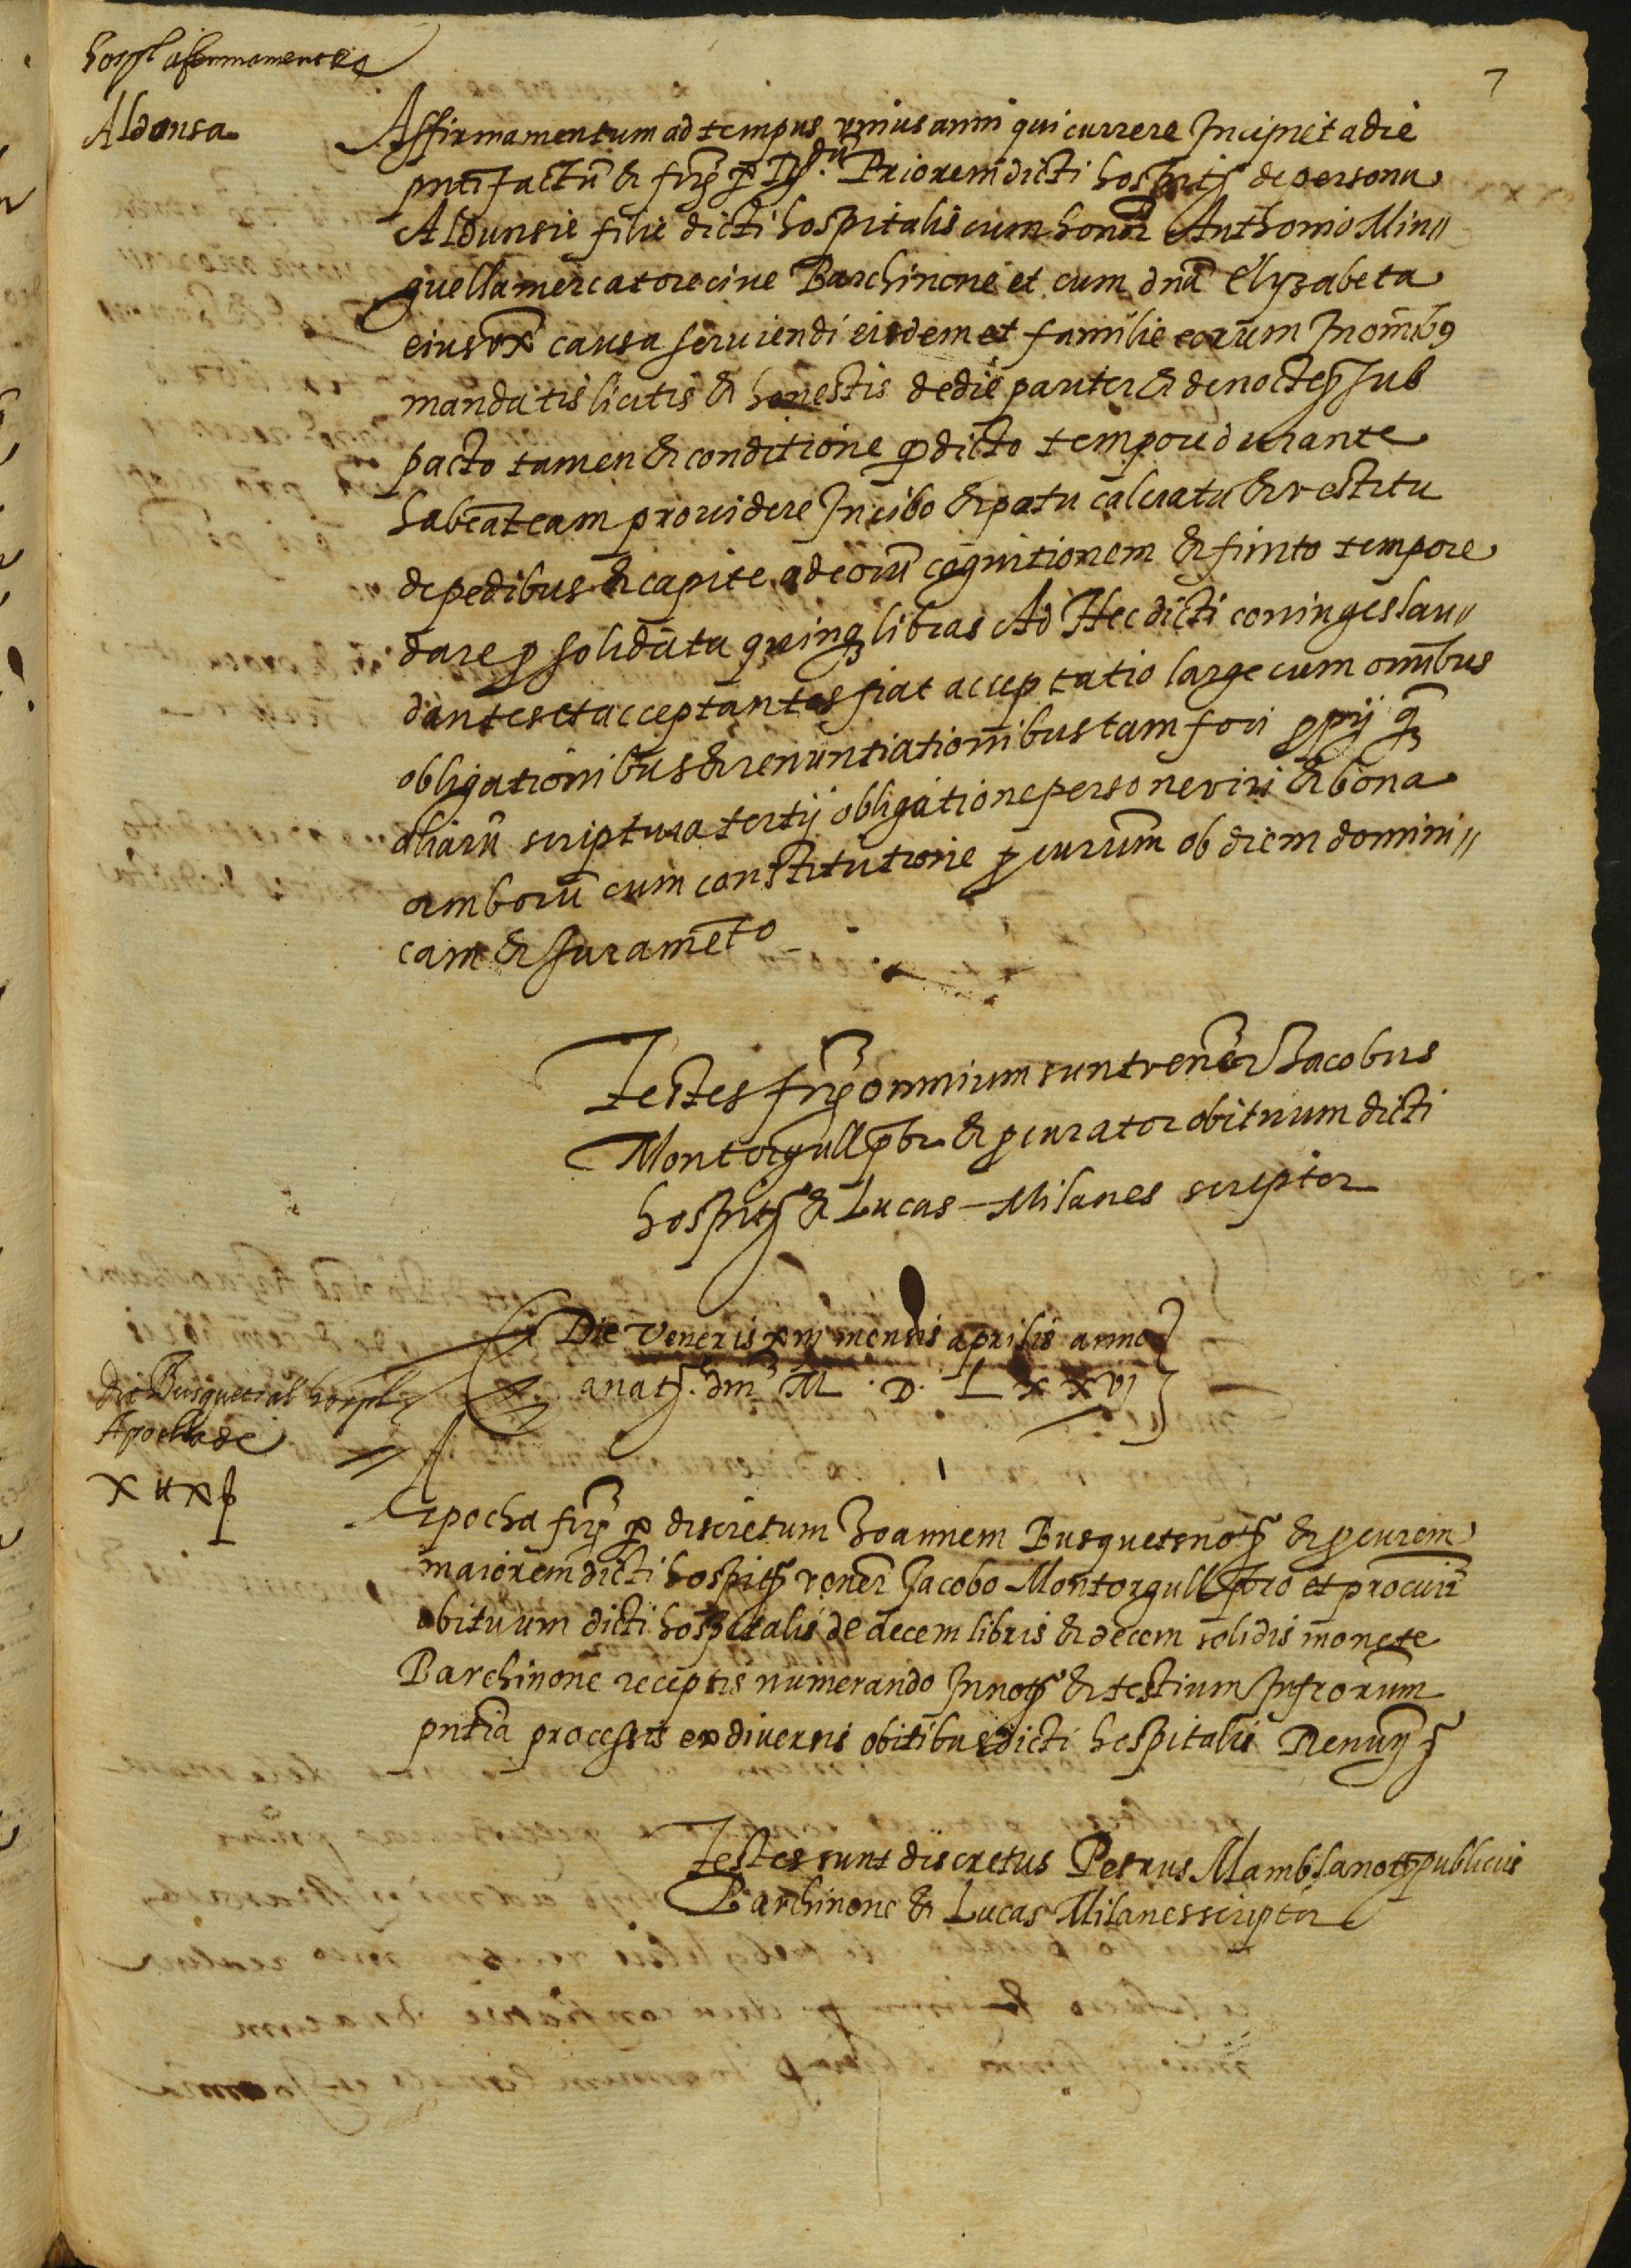 7
hospl affirmament
Aldonsa
Affirmamentum ad tempus unius anni qui currere Incipiet a die
pnti factũ & firẽ per Rdũ. Priorem dicti hospitĩs de persona
Aldunsie filie dicti hospitalis cum honor Anthonio Min〃
guella mercatore cive Barchinone et cum dnã Elyzabeta
eius ux̃ causa serviendi eisdem et familie eorum In omnib9
mandatis licitis & honestis de die pariter & de nocte sub
pacto tamen & conditione q̃ dicto tempore durante
habeãt eam providere In cibo & potu calciatu & vestitu
de pedibus & capite ad eorũ cognitionem & finito tempore
dare ꝑ solidata quinqꝫ libras Ad Hec dicti coniuges lau〃
dantes et acceptantes fiat acceptatio large cum omĩbus
obligationibus & renuntiationibus tam fori ꝓpij qꝫ
aliarũ scriptura tertij obligatione persone viri & bona
amborũ cum constitutione ꝓcurũm ob diem domini〃
cam & Juramẽto
Testes firẽ omnium sunt venẽr Jacobus
Montorgull p̃br & ꝓcurator obituum dicti
hospitĩs & Lucas Milanes scriptor
Die Veneris xiij mensis aprilis anno
a natĩ. dnĩ M. D. L x x vj
Dit Busquet al hospl
Apocha de
X ll x ß
Apocha firẽ ꝑ discretum Joannem Busquets notñ & ꝓcurem
maiorem dicti hospitĩs venẽr Jacobo Montorgull p̃bro et procurĩ
obituum dicti hospitalis de decem libris & decem solidis monete
Barchinone receptis numerando In notĩ & testium Infrorum
pntia processis ex diversis obitibus dicti hospitalis Renunĩ
Testes sunt discretus Petrus Mambla notĩ publicus
Barchinone & Lucas Milanes scriptor